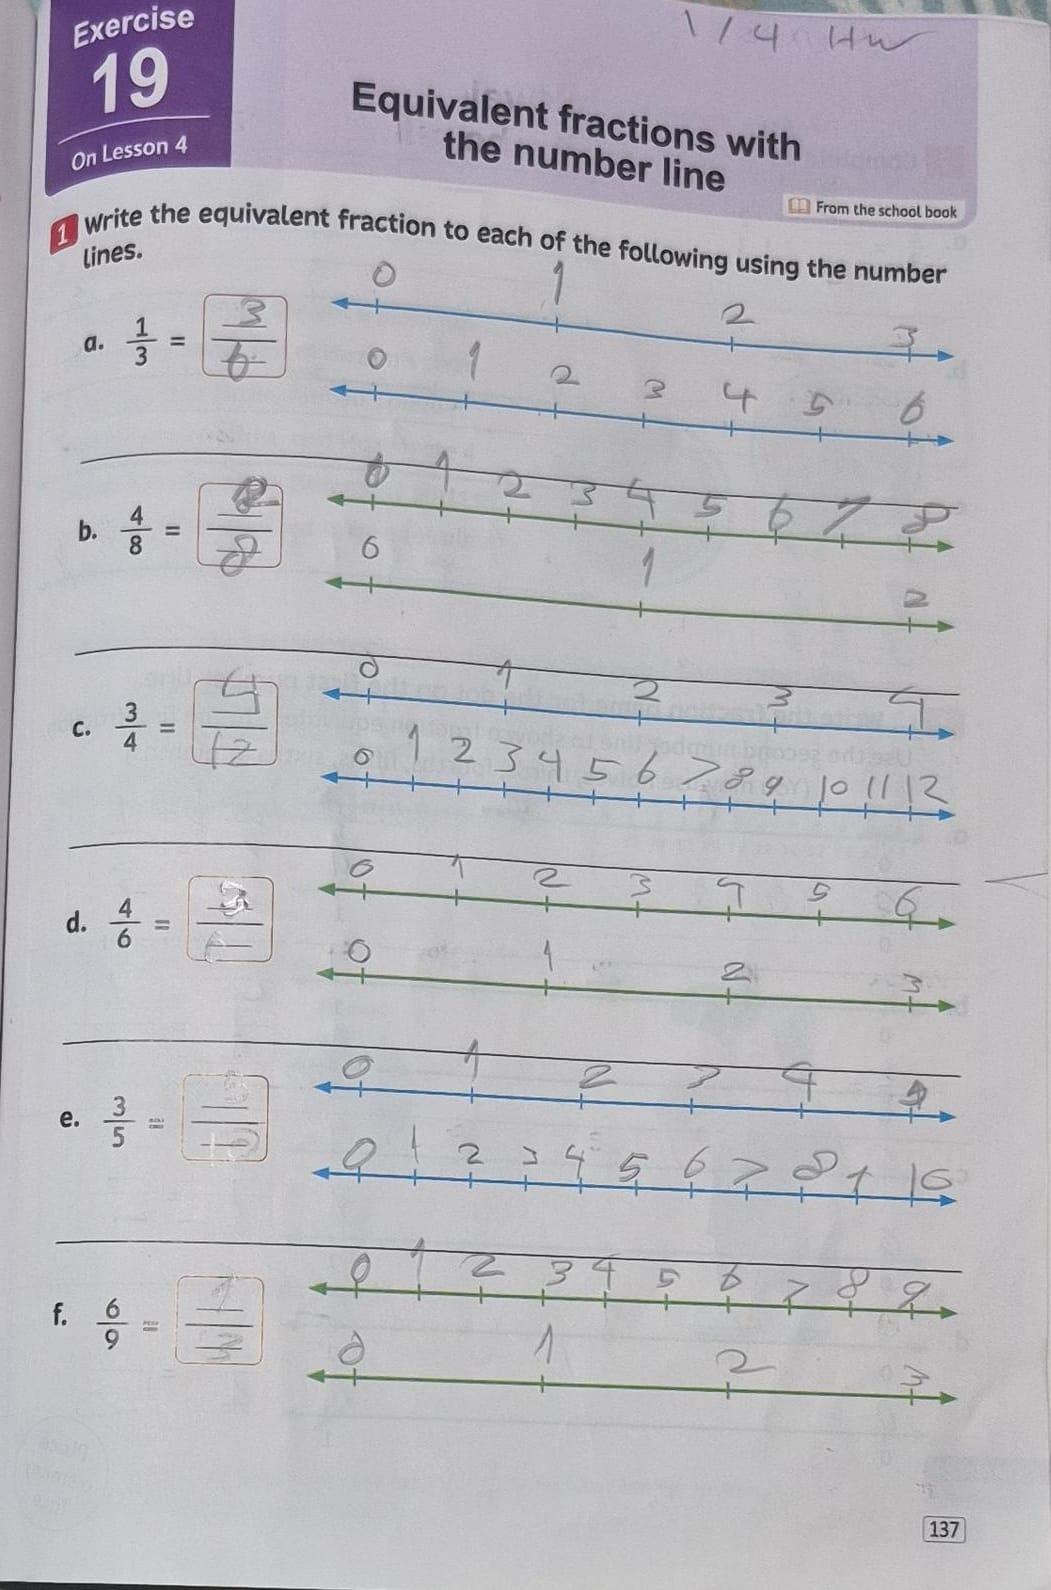 1/4 HW
Exercise
19
On Lesson 4
Equivalent fractions with
the number line
From the school book
1 Write the equivalent fraction to each of the following using the number
lines.
0 1 2 3
a. 1/3 = 3/6
0 1 2 3 4 5 6
0 1 2 3 4 5 6 7 8
b. 4/8 =
6 1 2
0 1 2 3 4
c. 3/4 = 4/12
0 1 2 3 4 5 6 7 8 9 10 11 12
0 1 2 3 4 5 6
d. 4/6 =
0 1 2 3
0 1 2 3 4
e. 3/5 =
0 1 2 3 4 5 6 7 8 10
0 1 2 3 4 5 6 7 8 9
f. 6/9 = 1/3
0 1 2 3
137